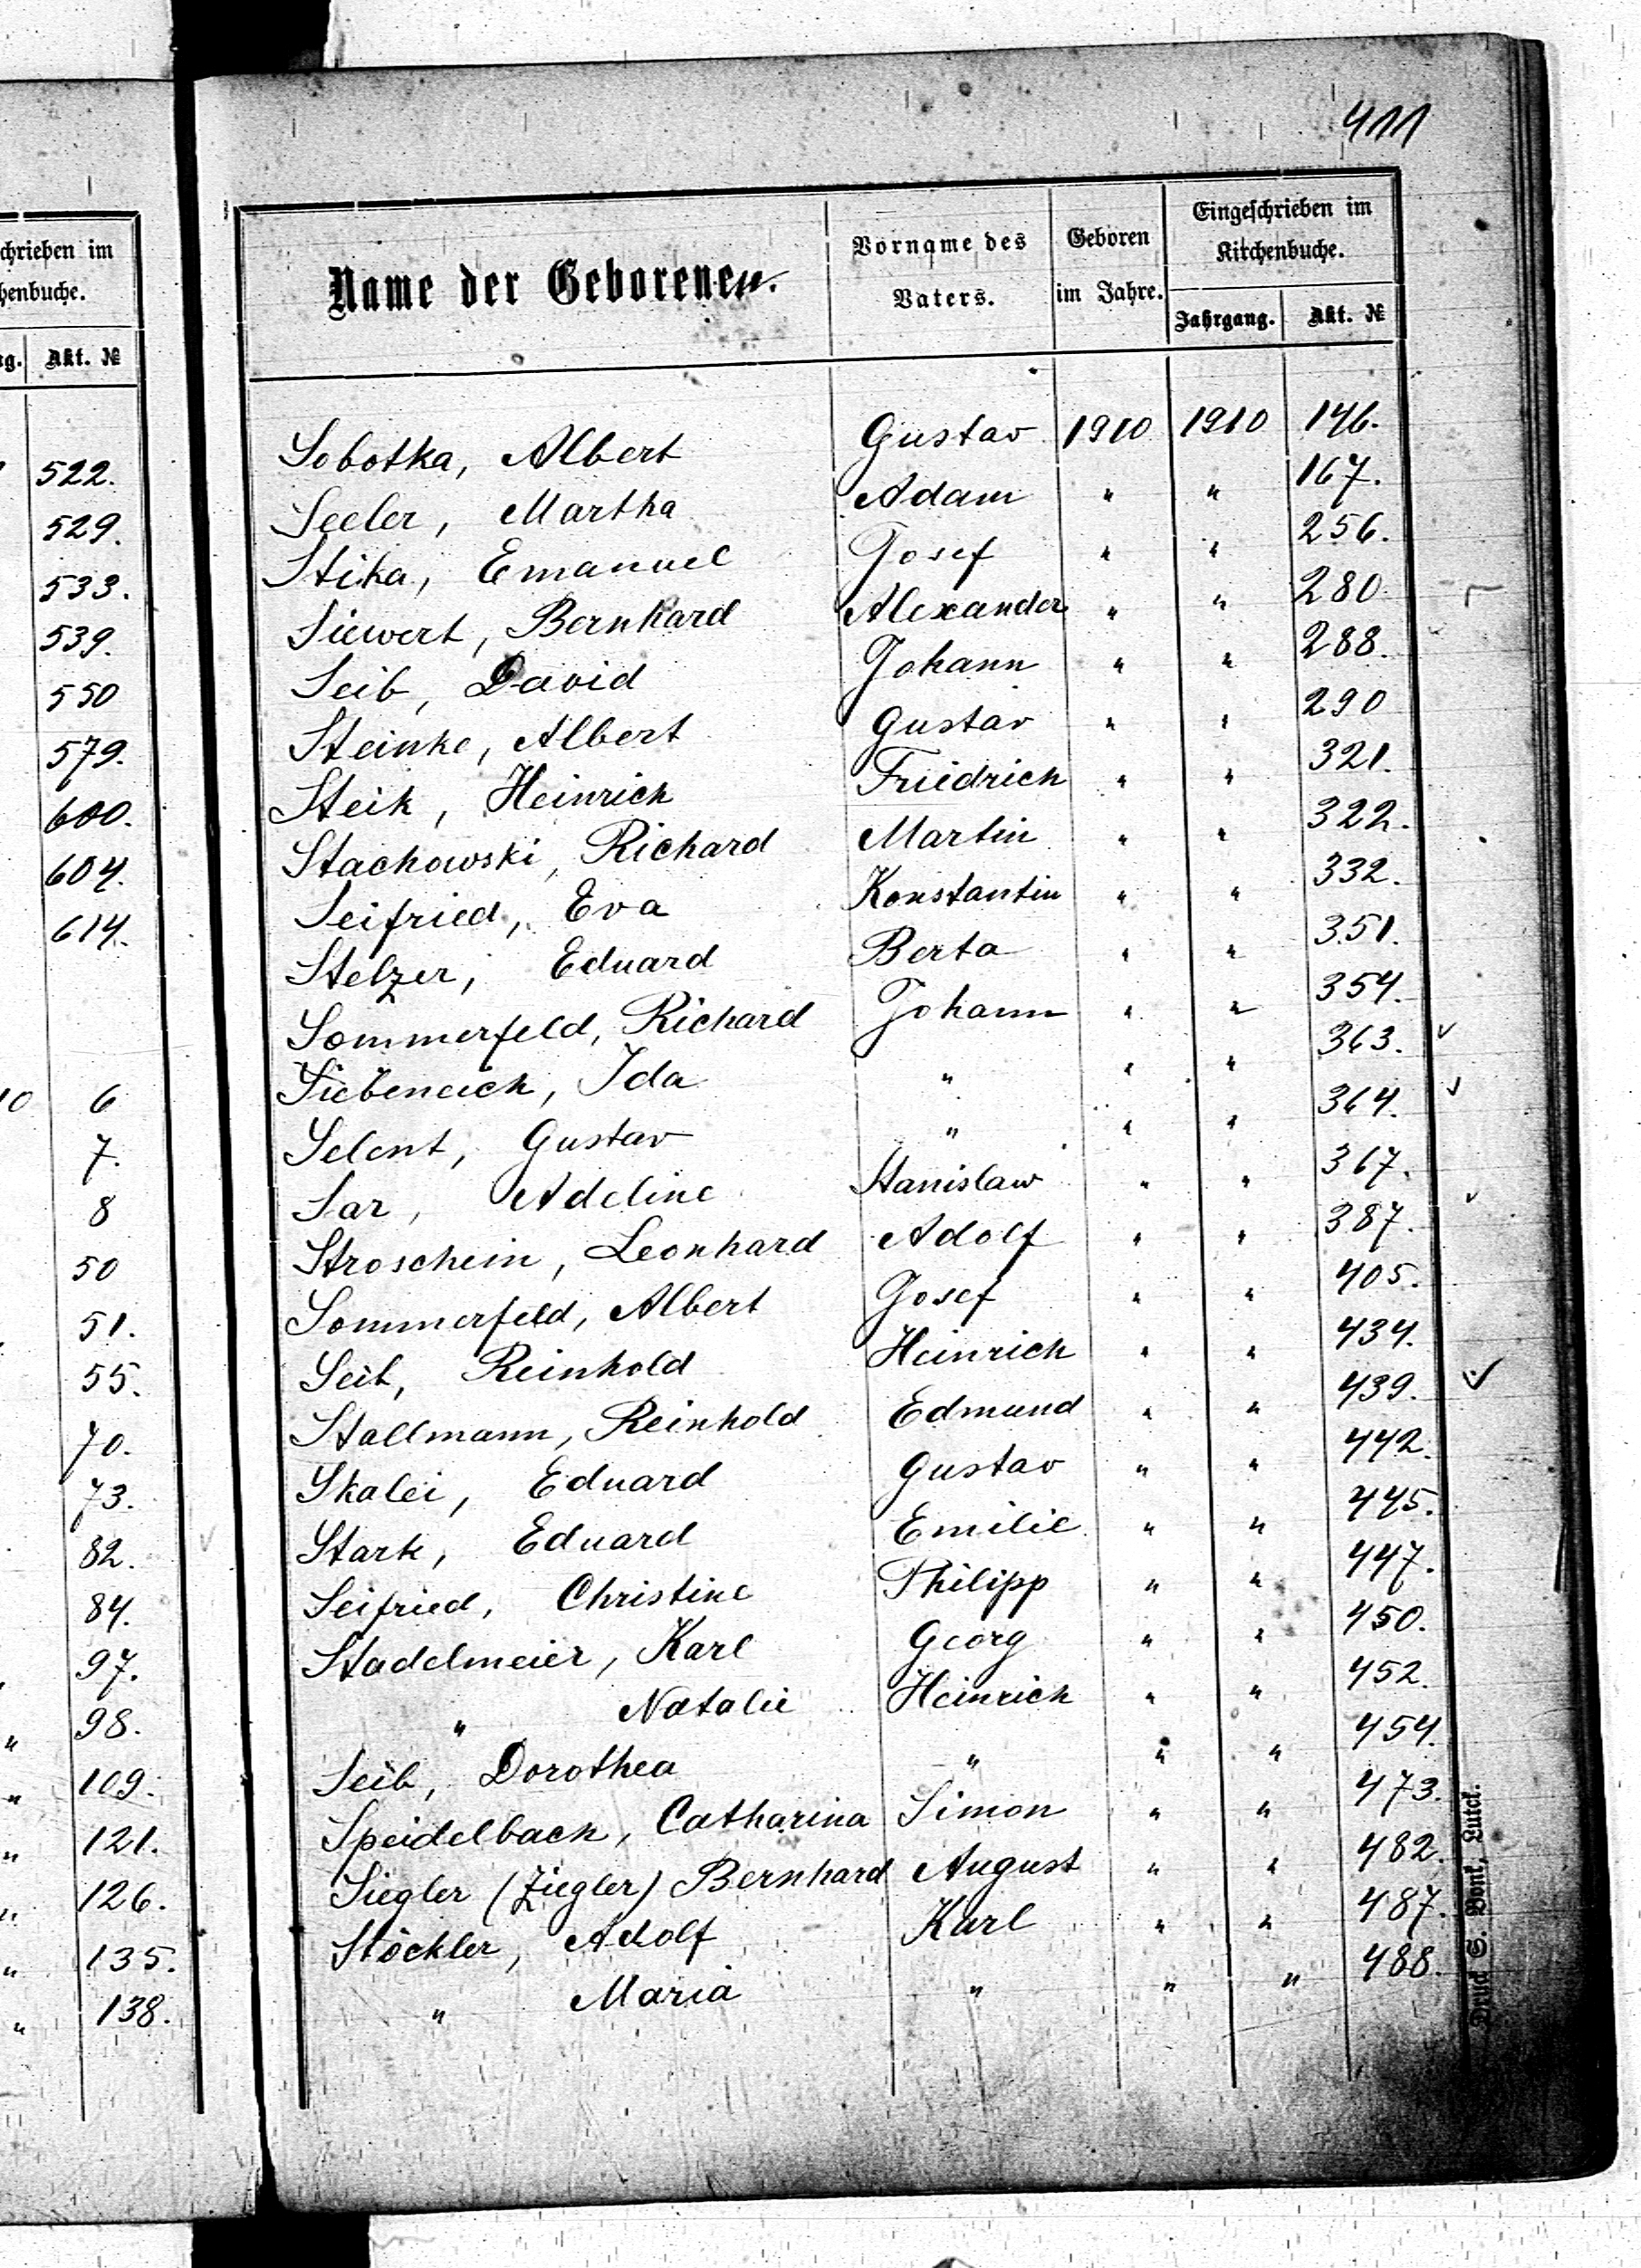 411
chrieben im
henbuche.
g. Akt. №
522.
529.
533.
539.
550
579.
600.
604.
614.
10 6
7.
8
50
51.
55.
70.
73.
82.
84.
97.
" 98.
" 109.
" 121.
" 126.
" 135.
" 138.
Name der Geborenen. Vorname des Vaters. Geboren im Jahre. Eingeschrieben im Kirchenbuche.
Jahrgang. Akt. №
Sobotka, Albert Gustav 1910 1910 146.
Seeler, Martha Adam " " 167.
Stika, Emanuel Josef " " 256.
Siewert, Bernhard Alexander " " 280
Seib, David Johann " " 288.
Steinke, Albert Gustav " " 290
Steik, Heinrich Friedrich " " 321.
Stachowski, Richard Martin " " 322.
Seifried, Eva Konstantin " " 332.
Stelzer, Eduard Berta " " 351.
Sommerfeld, Richard Johann " " 354.
Siebeneich, Ida " " " 363.
Selent, Gustav " " " 364.
Sar, Adeline Stanislaw " " 367.
Stroschein, Leonhard Adolf " " 387.
Sommerfeld, Albert Josef " " 405.
Seib, Reinhold Heinrich " " 434.
Stallmann, Reinhold Edmund " " 439.
Skalei, Eduard Gustav " " 442.
Stark, Eduard Emilie " " 445.
Seifried, Christine Philipp " " 447.
Stadelmeier, Karl Georg " " 450.
" Natalie Heinrich " " 452.
Seib, Dorothea " " " 454.
Speidelbach, Catharina Simon " " 473.
Siegler (Ziegler) Bernhard August " " 482.
Stöckler, Adolf Karl " " 487.
" Maria " " " 488.
Druck S. Bonk, Luck.